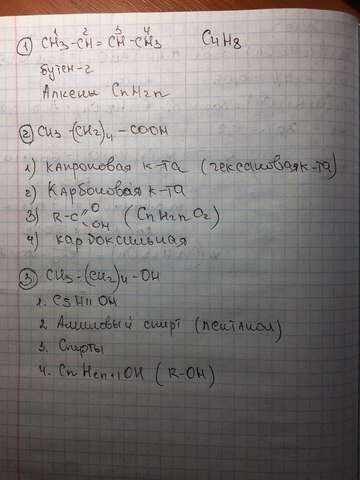 1 2 3 4
① CH3-CH=CH-CH3 C4H8
бутен-2
Алкены CnH2n
② CH3-(CH2)4-COOH
1) капроновая к-та (гексановая к-та)
2) Карбоновая к-та
3) R-C=O OH (CnH2nO2)
4) карбоксильная
③ CH3-(CH2)4-OH
1. C5H11OH
2 Амиловый спирт (пентанол)
3. Спирты
4. CnH2n+1OH (R-OH)